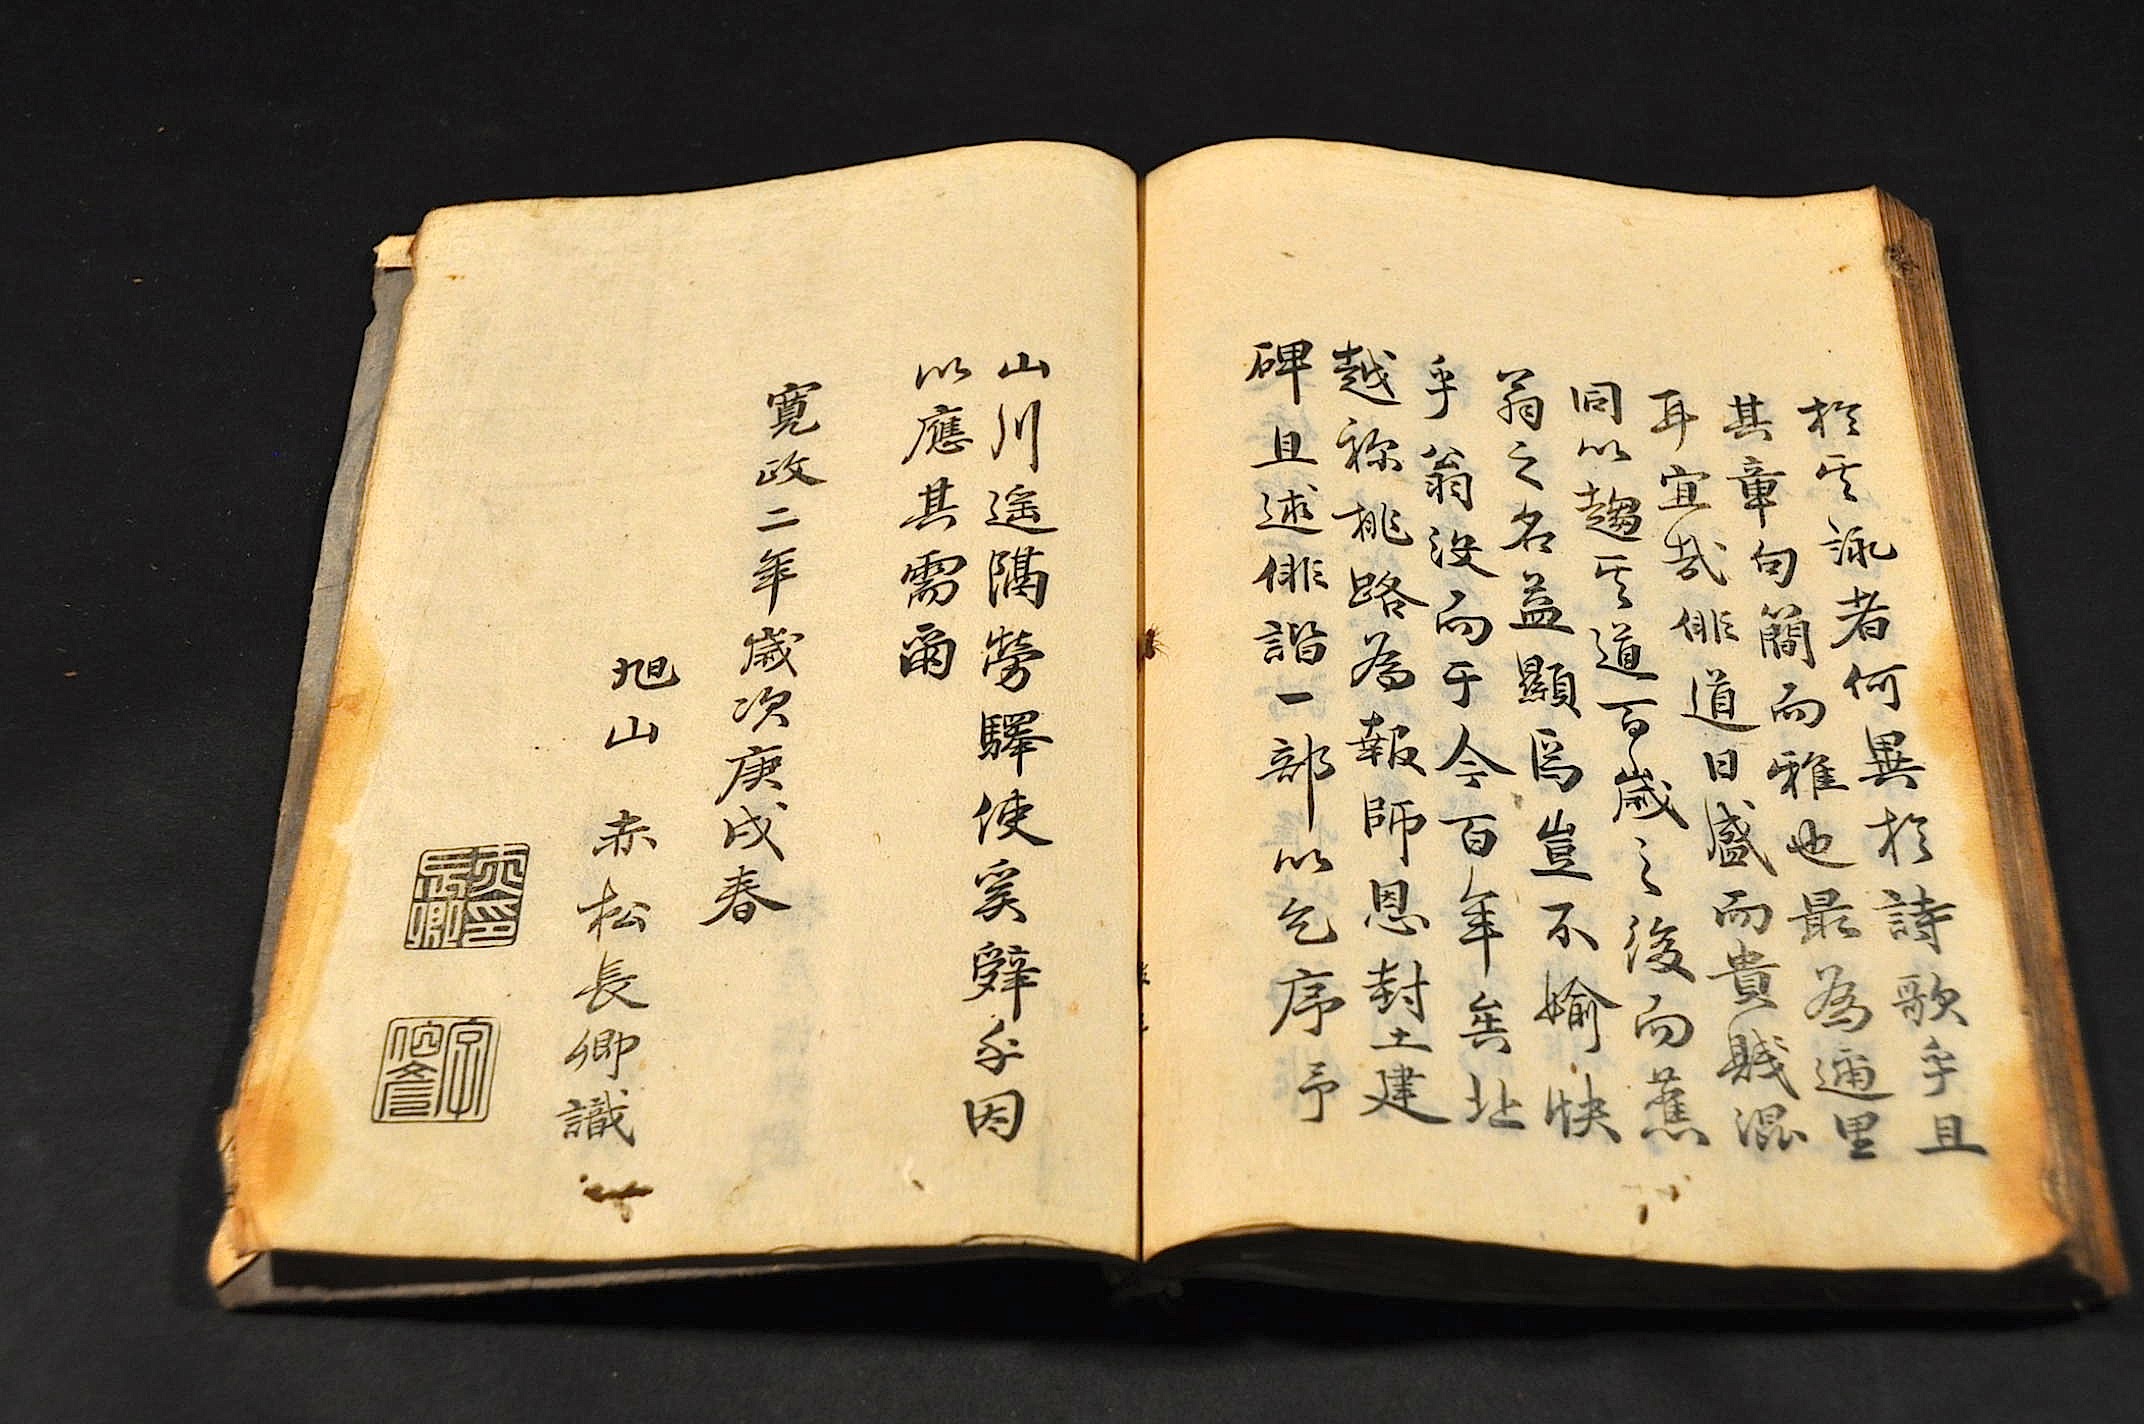 於其詠者何異於詩歌乎且
其章句簡而雅也最為邇里
耳宜哉俳道日盛而貴賤混
同以趨其道百歳之後而蕉
翁之名益顯焉豈不愉快
乎翁沒而于今百年矣北
越祢桃路為報師恩封土建
碑且述俳諧一部以乞序予
山川遥隔勞驛使奚辞乎因
以應其需爾
寛政二年歳次庚戌春
旭山 赤松長卿識